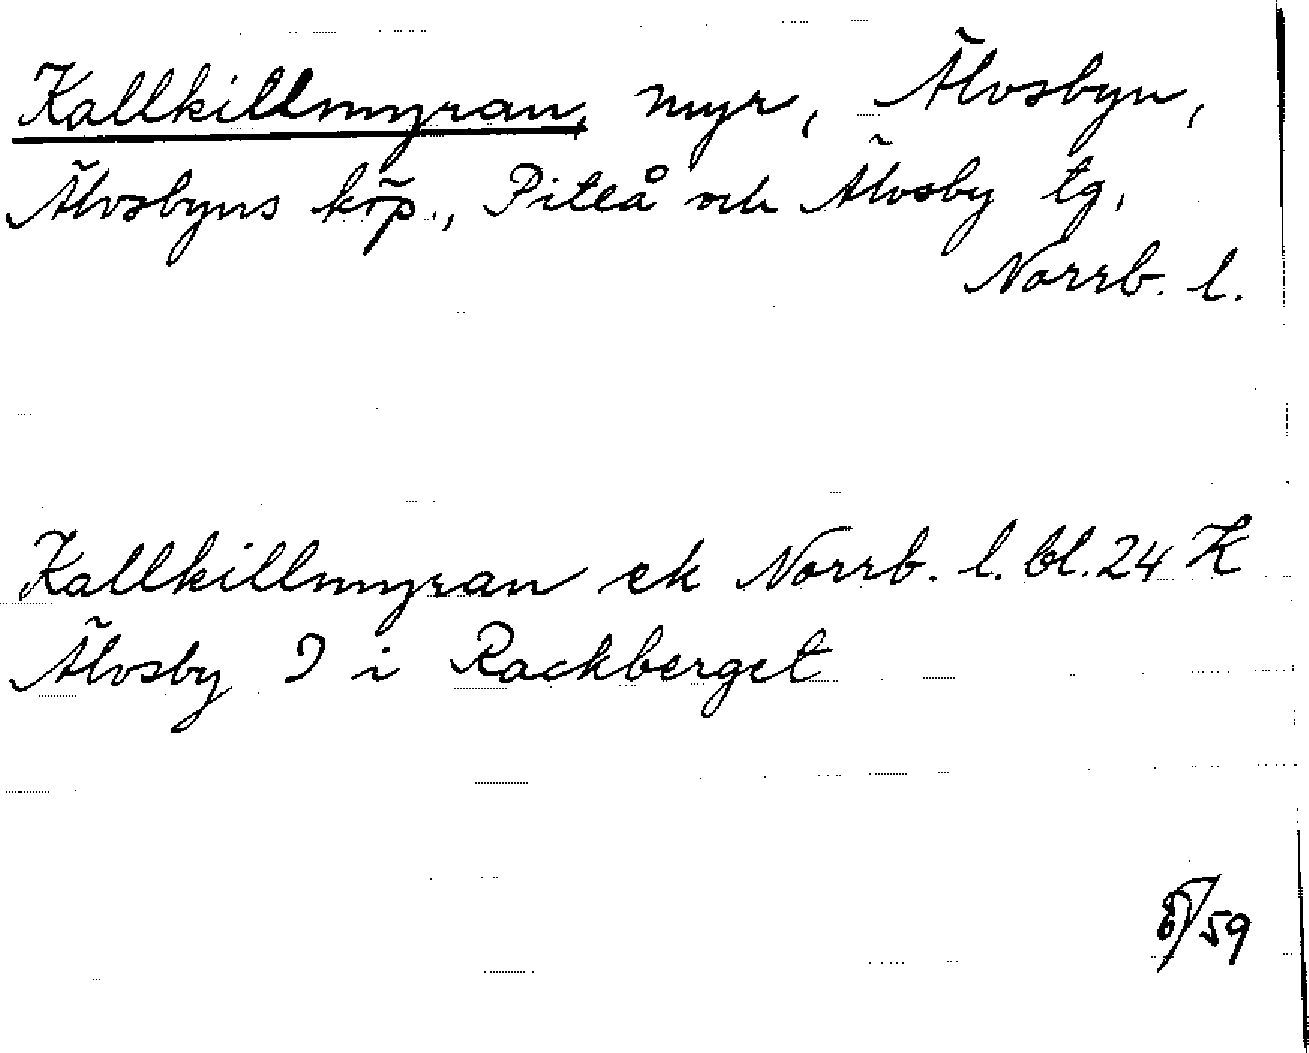 Kallkillmyran, myr, Älvsbyn,
Älvsbyns köp., Piteå och Älvsby tg,
Norrb. l.
Kallkillmyran ek Norrb. l. bl. 24 K
Älvsby I i Rackberget
/59